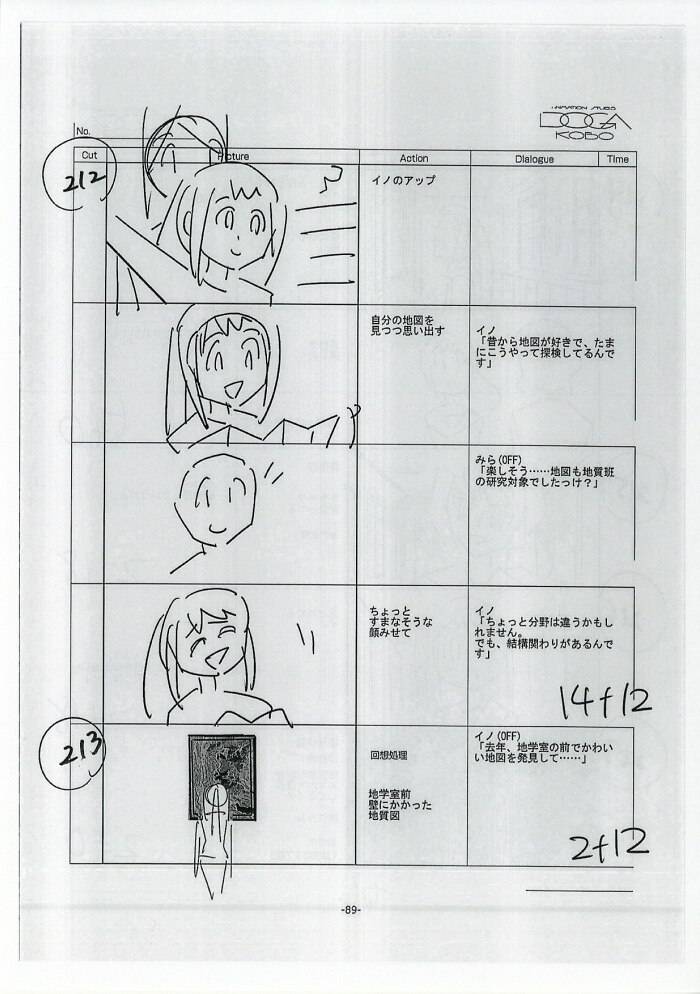 ANIMATION STUDIO
DOGA
KOBO
No.
Cut
Picture
Action
Dialogue
Time
212
イノのアップ
自分の地図を
見つつ思い出す
イノ
「昔から地図が好きで、たま
にこうやって探検してるんで
す」
みら(OFF)
「楽しそう……地図も地質班
の研究対象でしたっけ？」
ちょっと
すまなそうな
顔みせて
イノ
「ちょっと分野は違うかもし
れません。
でも、結構関わりがあるんで
す」
14+12
213
回想処理
地学室前
壁にかかった
地質図
イノ(OFF)
「去年、地学室の前でかわい
い地図を発見して……」
2+12
-89-